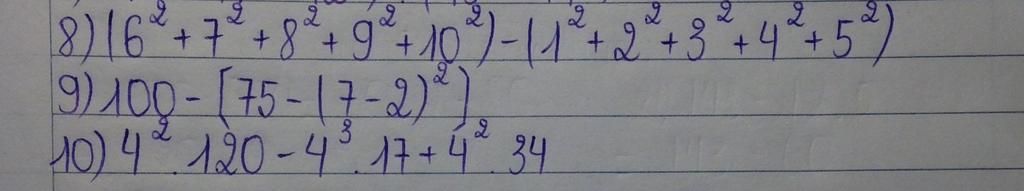 8) (6² + 7² + 8² + 9² + 10²) - (1² + 2² + 3² + 4² + 5²)
9) 100 - [75 - (7 - 2)²]
10) 4² . 120 - 4³ . 17 + 4² . 34